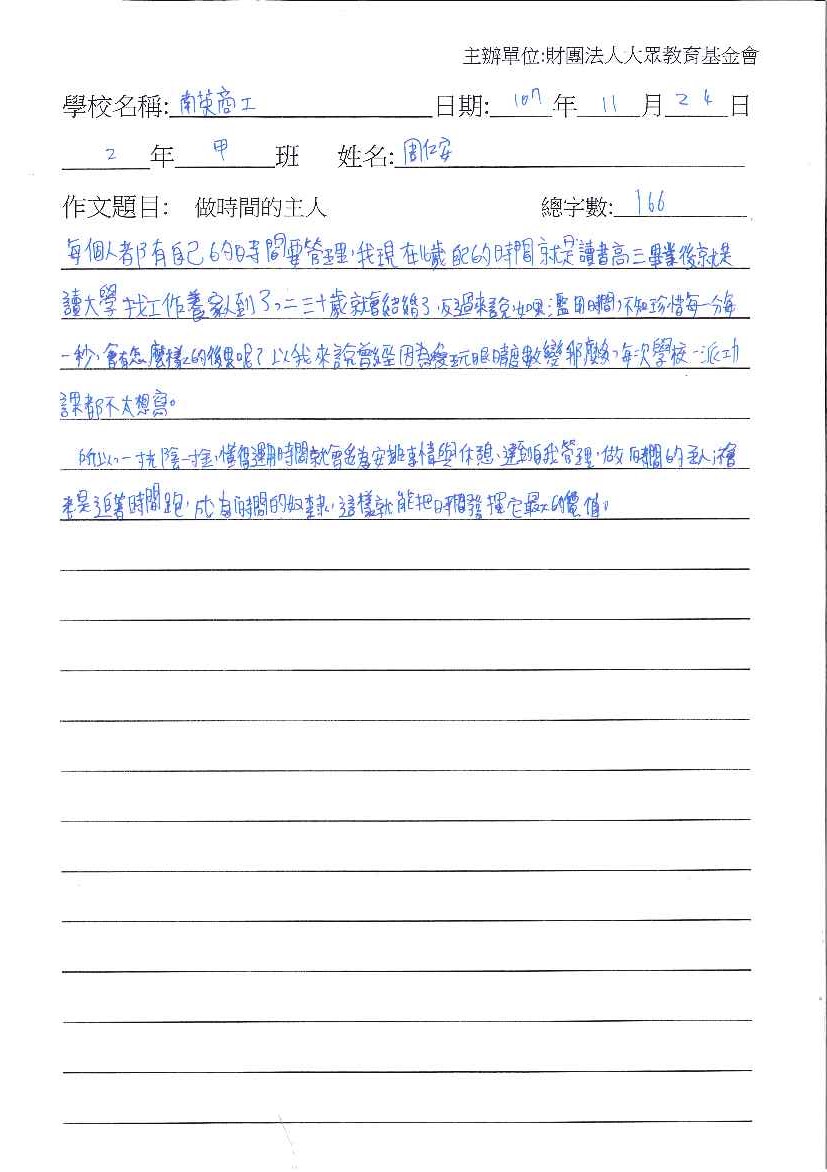 主辦單位:財團法人大眾教育基金會
學校名稱:南英商工 日期: 107 年 11 月 24 日
2 年 甲 班 姓名:周仁安
作文題目: 做時間的主人 總字數: 166
每個人都有自己的時間要管理,我現在16歲配的時間就是讀書高三畢業後就是
讀大學找工作養家人到了,二三十歲就會結婚了,反過來說,如果濫用時間,不知珍惜每一分每
一秒,會有怎麼樣的後果呢?以我來說曾經因為愛玩眼睛度數變那麼多,每次學校一派功
課都不太想寫。
所以,一寸光陰一寸金,懂得運用時間就會安排事情與休憩,達到自我管理,做時間的主人,
來是追著時間跑,成為時間的奴隸,這樣就能把時間發揮它最大的價值。